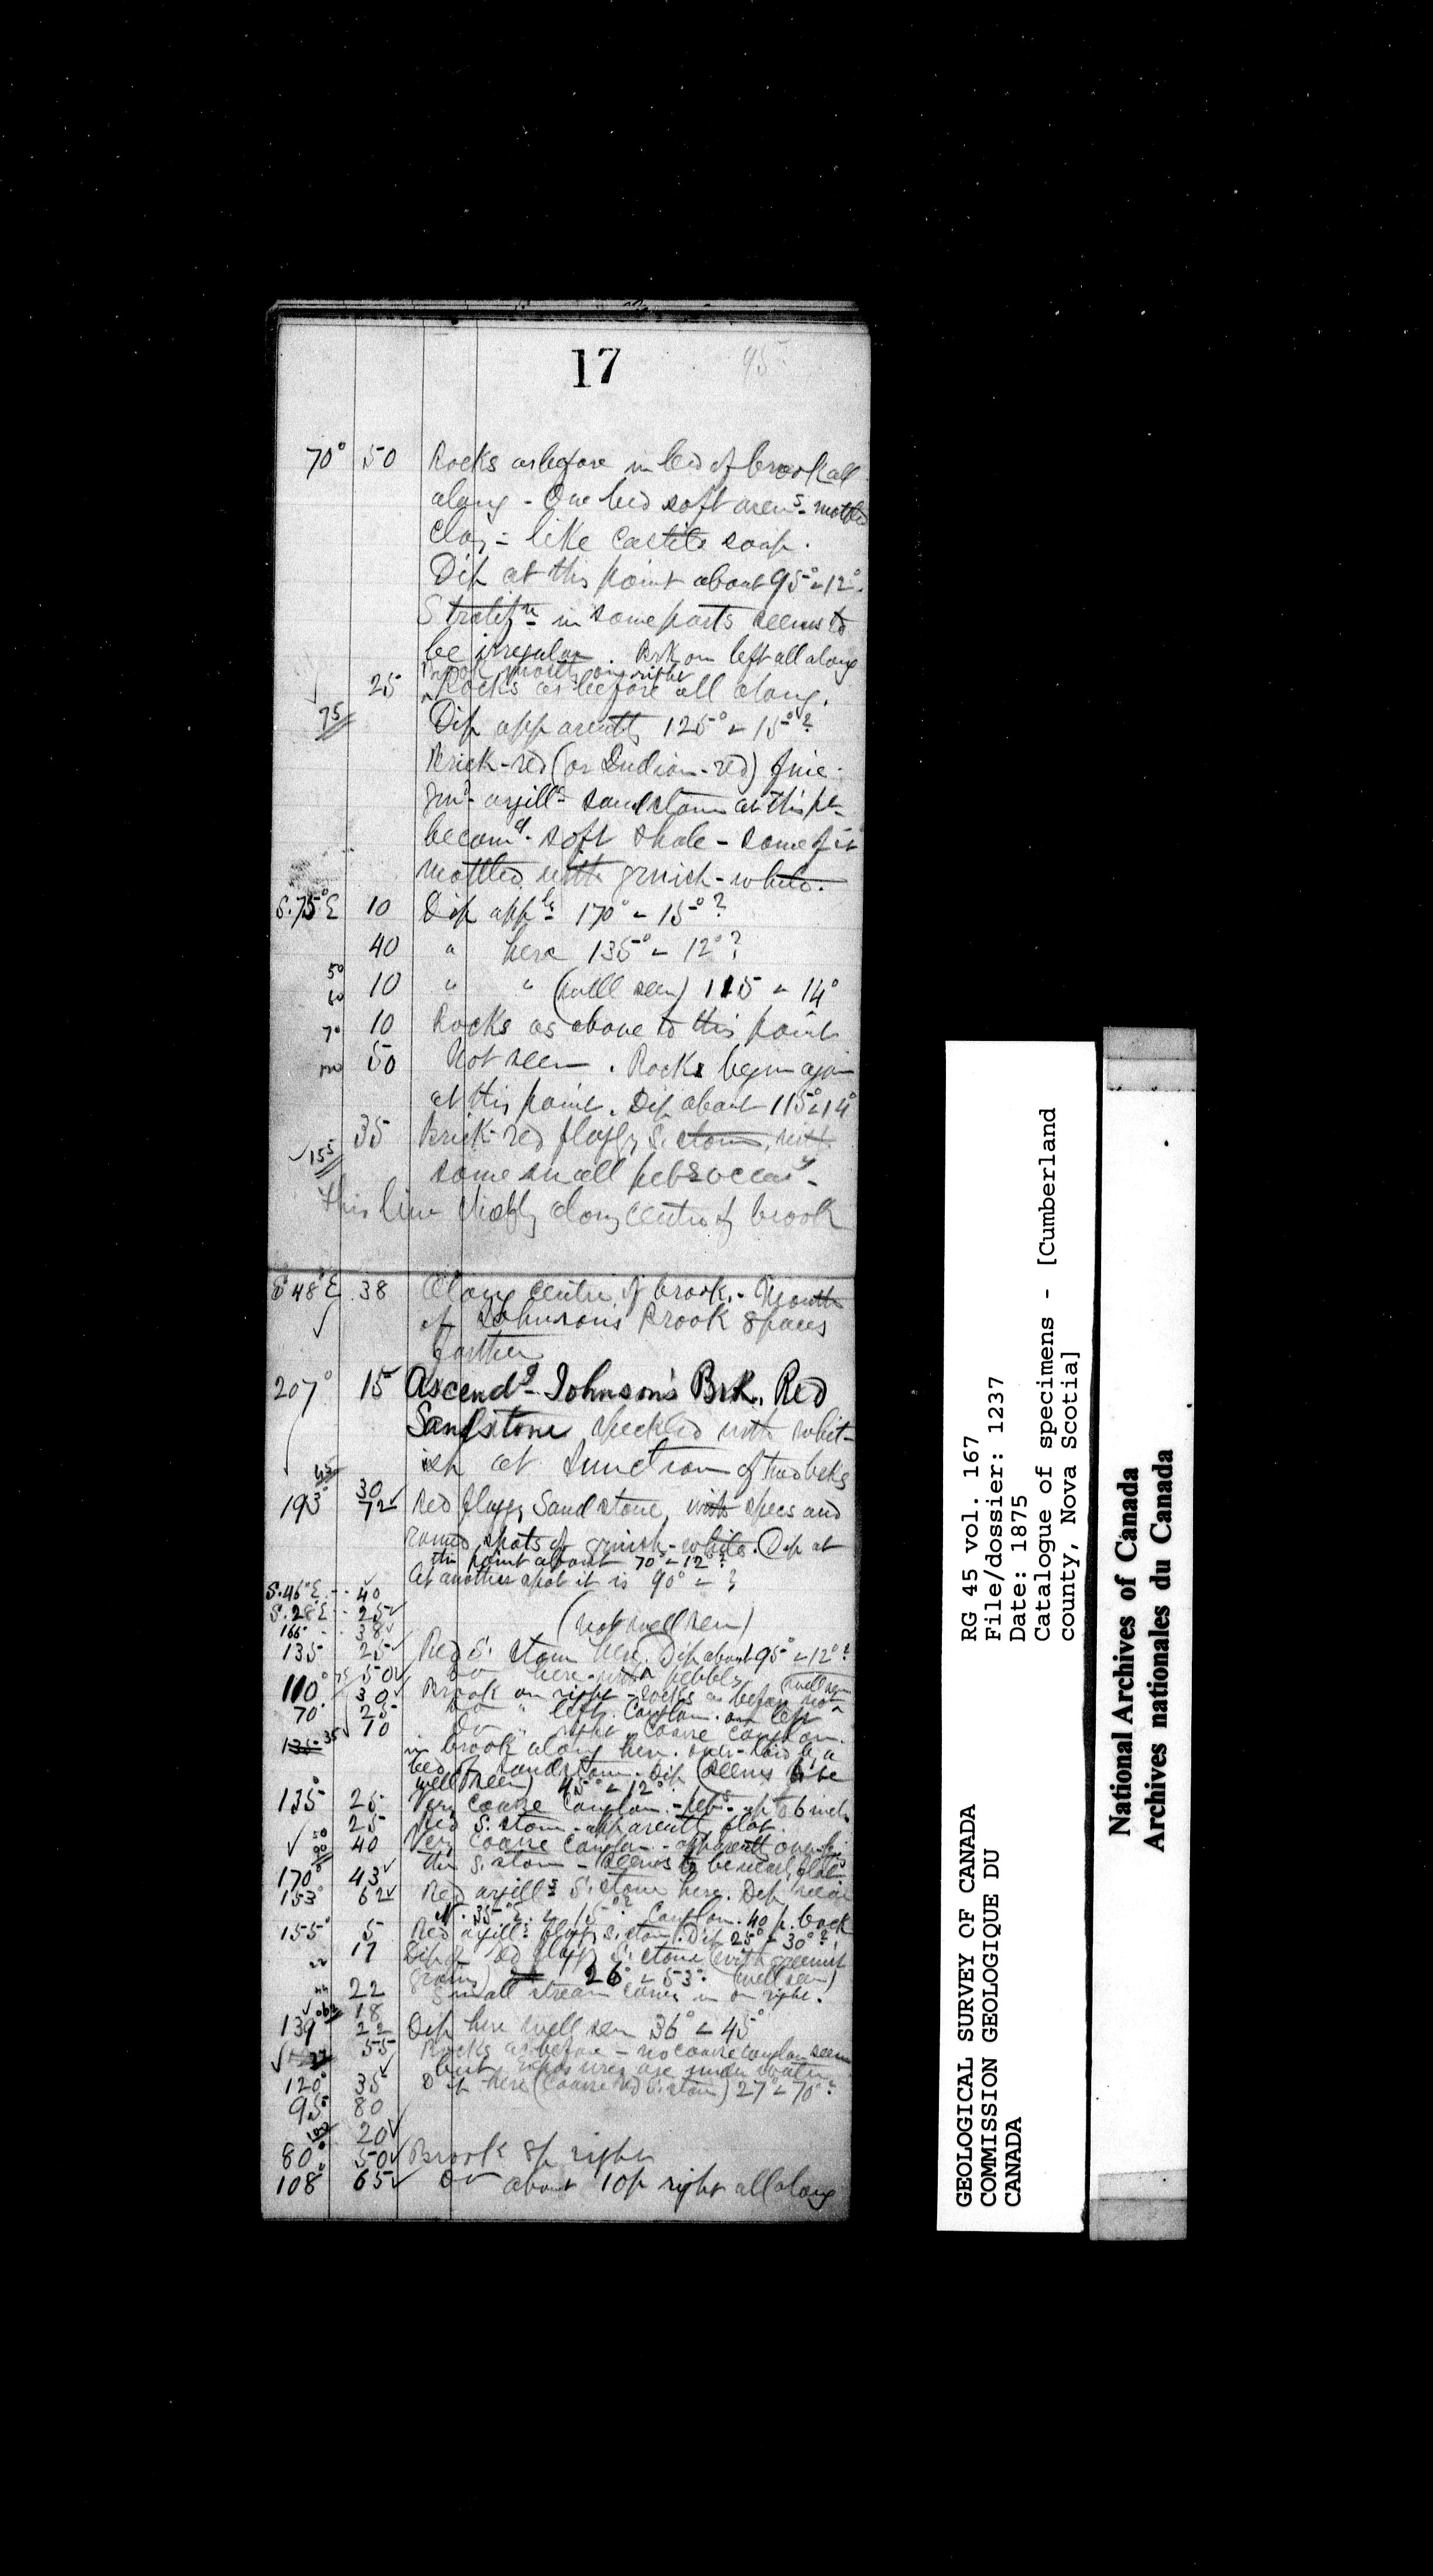 17
95
70° 50 Rocks as before in bed of brook all
along - One bed soft aren s - mottled
clay - like Castile soap.
Dip at this point about 95° < 12°.
Stratifn in some parts seems to
be irregular. Brk on left all along
Brook mostly on right
25 Rocks as before all along.
75 Dip apparently 125° < 15°?
Brick-red (or Indian-red) fine-
grnd argills sandstone at this pt
becomg soft shale - some of it
mottled with grnish-white.
S.75°E 10 Dip apply 170° < 15°?
40 " here 135° < 12°?
50
60 10 " " (well seen) 115 < 14°
70 10 Rocks as above to this point
50 Not seen. Rocks begin again
at this point. Dip about 115° < 14°
35 Brick-red flaggy S. stone, with
155 some small pebs occasy
This line chiefly along centre of brook
S 48°E 38 Along centre of brook. - Mouth
of Johnson's Brook 8 paces
farther
207° 15 Ascendg Johnson's Brk. Red
Sandstone speckled with whit-
ish at Junction of two bks
45
30
193° 72 Red flaggy Sandstone, with specs and
round spots of grnish-white. Dip at
this point about 70° < 12°?
At another spot it is 90° < ?
S.46°E 40
S.28E 25 (not well seen)
166° 38
135 25 Red S. stone here. Dip about 95° < 12°?
75 50 Do here with pebbles
110° 30 Brook on right - rocks as before not well seen
70° 25 Do " left. Conglom. on left
10 Do " right. Coarse conglom.
135 35 in brook along here. over-laid by a
bed of sandstone. Dip (seems to be
well seen) 45° < 12°.
135° 25 Very coarse Conglom. - pebs - up to 6 inch
25 Red S. stone - apparently flat.
50
90 40 Very coarse Conglom. - apparently overlies
the S. stone - seems to be nearly flat.
170° 43
153° 62 Red argills S. stone here. Dip near
N. 35°E. < 15°? Conglom. 40 p. back
155° 5 Red argills flaggy S. stone. Dip 25° < 30°?
17 Dip of red flaggy S. stone (with greenish
22 grains) 26° < 53°. (well seen)
22 Small stream comes in on right.
18
139° 22 Dip here well seen 36° < 45°
55 Rocks as before - no coarse conglom seen
77 but exposures are under water
120° 35 Dip here (coarse red S. stone) 27° < 70°?
95 80
20
80° 50 Brook 8p right
108° 65 Do about 10p right all along
GEOLOGICAL SURVEY OF CANADA
COMMISSION GEOLOGIQUE DU
CANADA
RG 45 vol. 167
File/dossier: 1237
Date: 1875
Catalogue of specimens - [Cumberland
county, Nova Scotia]
National Archives of Canada
Archives nationales du Canada